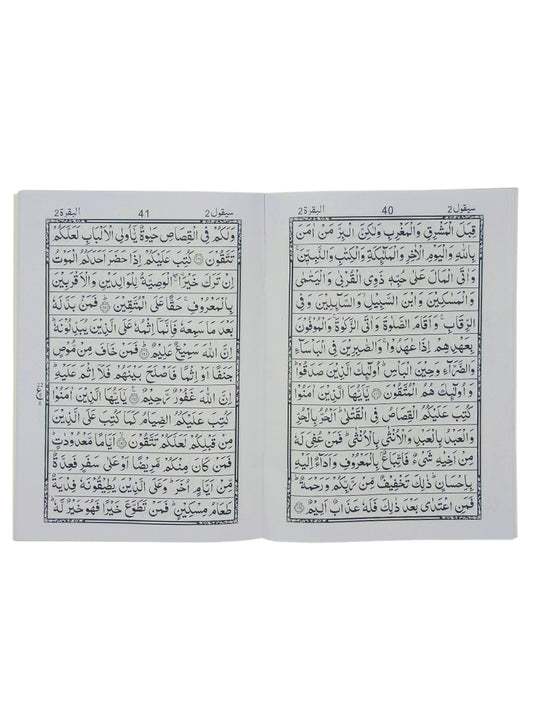 البقرة 2
40
سيقول 2
قِبَلَ الْمَشْرِقِ وَالْمَغْرِبِ وَلٰكِنَّ الْبِرَّ مَنْ اٰمَنَ
بِاللّٰهِ وَالْيَوْمِ الْاٰخِرِ وَالْمَلٰٓئِكَةِ وَالْكِتٰبِ وَالنَّبِيّٖنَ ۚ
وَاٰتَى الْمَالَ عَلٰى حُبِّهٖ ذَوِي الْقُرْبٰى وَالْيَتٰمٰى
وَالْمَسٰكِيْنَ وَابْنَ السَّبِيْلِ ۙ وَالسَّآئِلِيْنَ وَفِي
الرِّقَابِ ۚ وَاَقَامَ الصَّلٰوةَ وَاٰتَى الزَّكٰوةَ ۚ وَالْمُوْفُوْنَ
بِعَهْدِهِمْ اِذَا عٰهَدُوْا ۚ وَالصّٰبِرِيْنَ فِي الْبَاْسَآءِ
وَالضَّرَّآءِ وَحِيْنَ الْبَاْسِ ؕ اُولٰٓئِكَ الَّذِيْنَ صَدَقُوْا ؕ
وَاُولٰٓئِكَ هُمُ الْمُتَّقُوْنَ ﴿۱۷۷﴾ يٰٓاَيُّهَا الَّذِيْنَ اٰمَنُوْا
كُتِبَ عَلَيْكُمُ الْقِصَاصُ فِي الْقَتْلٰى ؕ اَلْحُرُّ بِالْحُرِّ
وَالْعَبْدُ بِالْعَبْدِ وَالْاُنْثٰى بِالْاُنْثٰى ؕ فَمَنْ عُفِيَ لَهٗ
مِنْ اَخِيْهِ شَيْءٌ فَاتِّبَاعٌۢ بِالْمَعْرُوْفِ وَاَدَآءٌ اِلَيْهِ
بِاِحْسَانٍ ؕ ذٰلِكَ تَخْفِيْفٌ مِّنْ رَّبِّكُمْ وَرَحْمَةٌ ؕ
فَمَنِ اعْتَدٰى بَعْدَ ذٰلِكَ فَلَهٗ عَذَابٌ اَلِيْمٌ ﴿۱۷۸﴾
البقرة 2
41
سيقول 2
وَلَكُمْ فِي الْقِصَاصِ حَيٰوةٌ يّٰٓاُولِي الْاَلْبَابِ لَعَلَّكُمْ
تَتَّقُوْنَ ﴿۱۷۹﴾ كُتِبَ عَلَيْكُمْ اِذَا حَضَرَ اَحَدَكُمُ الْمَوْتُ
اِنْ تَرَكَ خَيْرَا ۖۚ الْوَصِيَّةُ لِلْوَالِدَيْنِ وَالْاَقْرَبِيْنَ
بِالْمَعْرُوْفِ ۚ حَقًّا عَلَى الْمُتَّقِيْنَ ﴿۱۸۰﴾ فَمَنْۢ بَدَّلَهٗ
بَعْدَ مَا سَمِعَهٗ فَاِنَّمَآ اِثْمُهٗ عَلَى الَّذِيْنَ يُبَدِّلُوْنَهٗ ؕ
اِنَّ اللّٰهَ سَمِيْعٌ عَلِيْمٌ ﴿۱۸۱﴾ فَمَنْ خَافَ مِنْ مُّوْصٍ
جَنَفًا اَوْ اِثْمًا فَاَصْلَحَ بَيْنَهُمْ فَلَآ اِثْمَ عَلَيْهِ ؕ
اِنَّ اللّٰهَ غَفُوْرٌ رَّحِيْمٌ ﴿۱۸۲﴾ يٰٓاَيُّهَا الَّذِيْنَ اٰمَنُوْا
كُتِبَ عَلَيْكُمُ الصِّيَامُ كَمَا كُتِبَ عَلَى الَّذِيْنَ
مِنْ قَبْلِكُمْ لَعَلَّكُمْ تَتَّقُوْنَ ﴿۱۸۳﴾ اَيَّامًا مَّعْدُوْدٰتٍ ؕ
فَمَنْ كَانَ مِنْكُمْ مَّرِيْضًا اَوْ عَلٰى سَفَرٍ فَعِدَّةٌ
مِّنْ اَيَّامٍ اُخَرَ ؕ وَعَلَى الَّذِيْنَ يُطِيْقُوْنَهٗ فِدْيَةٌ
طَعَامُ مِسْكِيْنٍ ؕ فَمَنْ تَطَوَّعَ خَيْرًا فَهُوَ خَيْرٌ لَّهٗ ؕ